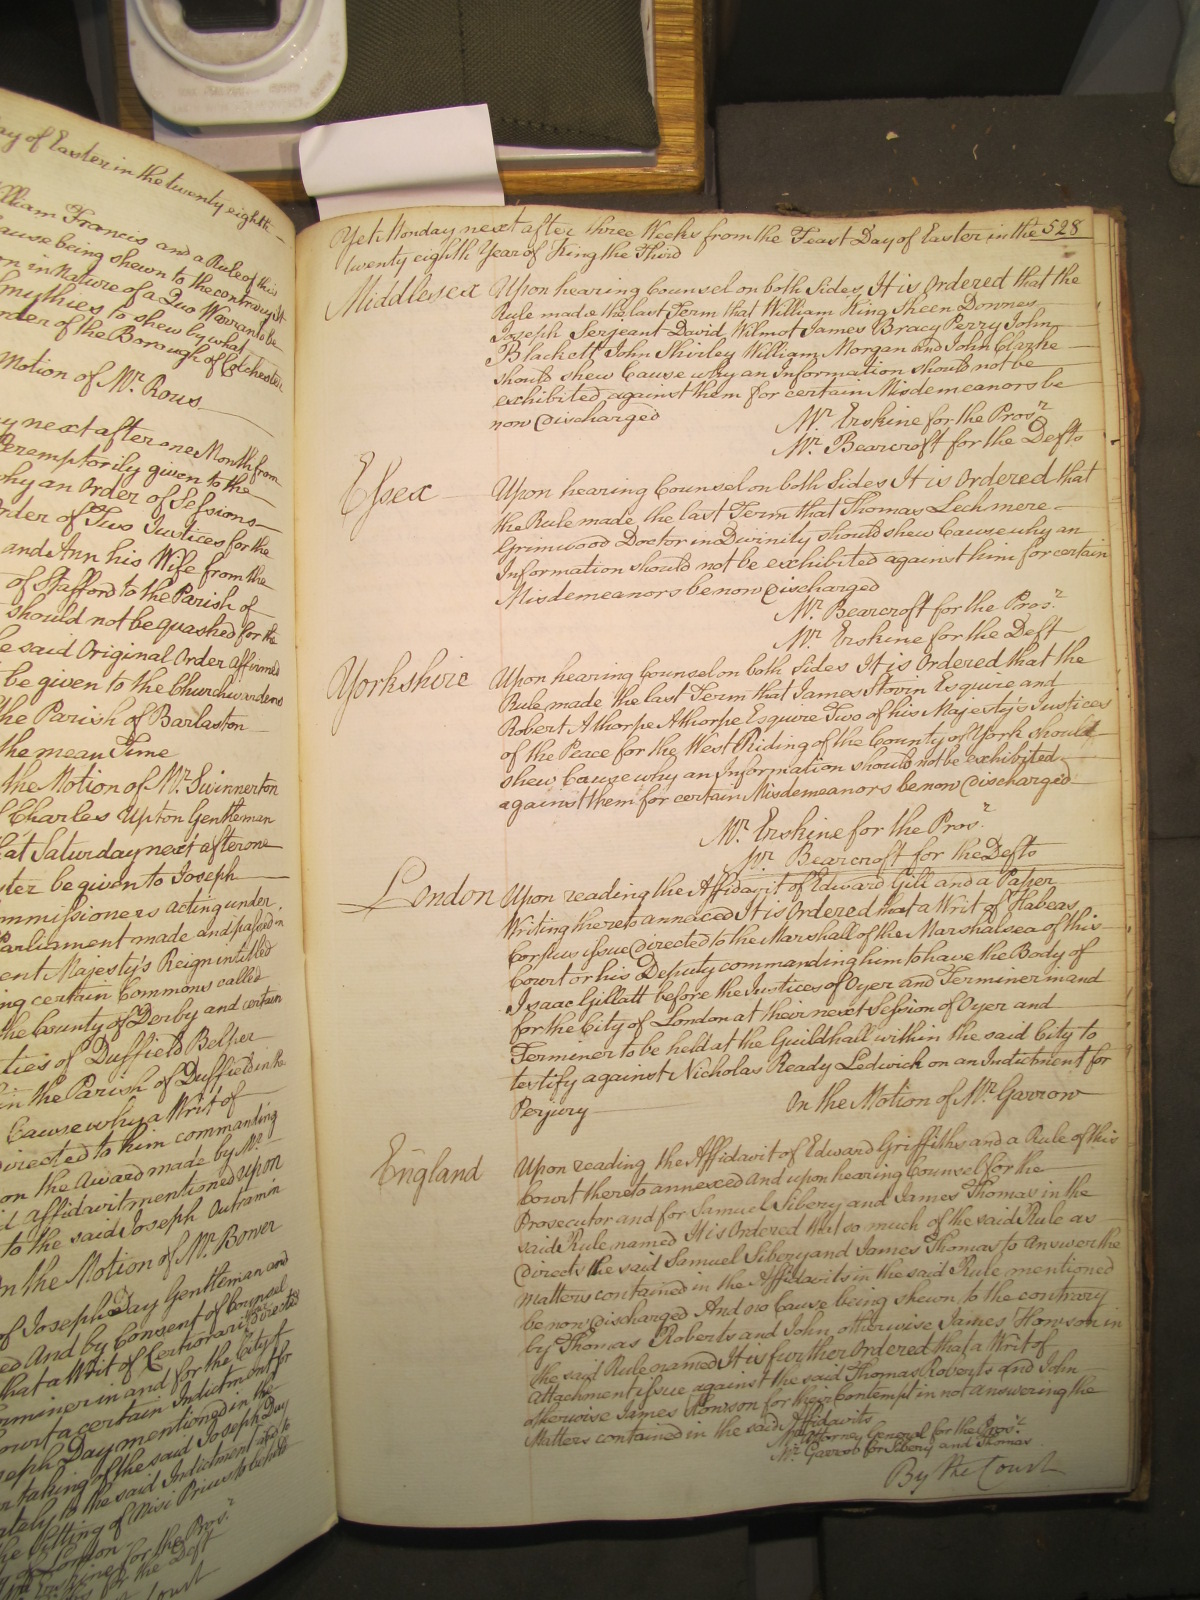 ay of Easter in the twenty eighth
lliam Francis and a Rule of this
ause being shewn to the contrary It
on in Nature of a Quo Warranto be
muthies to shew by what
rder of the Borough of Colchester
Motion of Mr. Rous
y next after one Month from
Peremptorily given to the
why an Order of Sessions
rder of Two Justices for the
and Ann his Wife from the
of Stafford to the Parish of
should not be quashed for the
e said Original Order affirmed
be given to the Churchwardens
the Parish of Barlaston
the mean Time
the Motion of Mr. Swinnerton
Charles Upton Gentleman
at Saturday next after one
ster be given to Joseph
ommissioners acting under
Parliament made and passed in
ent Majesty's Reign intitled
ng certain Commons called
the County of Derby and certain
ties of Duffield Belper
in the Parish of Duffield in the
Cause why a Writ of
directed to him commanding
on the Award made by Mr.
d Affidavit mentioned upon
to the said Joseph Outram in
On the Motion of Mr. Bower
of Joseph Day Gentleman and
ed And by Consent of Counsel
that a Writ of Certiorari Directed
rminer in and for the City of
ourt a certain Indictment for
seph Day mentioned in the
n taking of the said Joseph Day
ately to the said Indictment
the Sitting of Nisi Prius
of London
Erskine for the Pros.r
for the Deft
Court
Yet Monday next after three Weeks from the Feast Day of Easter in the 528
twenty eighth Year of King the Third
Middlesex Upon hearing Counsel on both Sides It is Ordered that the
Rule made the last Term that William King Sheen Downes
Joseph Serjeant David Wilmot James Bracy Perry John
Blackett John Shirley William Morgan and John Clarke
should shew Cause why an Information should not be
exhibited against them for certain Misdemeanors be
now Discharged
Mr. Erskine for the Pros.r
Mr. Bearcroft for the Defts
Essex Upon hearing Counsel on both Sides It is Ordered that
the Rule made the last Term that Thomas Lechmere
Grimwood Doctor in Divinity should shew Cause why an
Information should not be exhibited against him for certain
Misdemeanors be now Discharged
Mr. Bearcroft for the Pros.r
Mr. Erskine for the Deft
Yorkshire Upon hearing Counsel on both Sides It is Ordered that the
Rule made the last Term that James Stovin Esquire and
Robert Athorpe Athorpe Esquire Two of his Majesty's Justices
of the Peace for the West Riding of the County of York should
shew Cause why an Information should not be exhibited
against them for certain Misdemeanors be now Discharged
Mr. Erskine for the Pros.r
Mr. Bearcroft for the Defts
London Upon reading the Affidavit of Edward Gill and a Paper
Writing thereto annexed It is Ordered that a Writ of Habeas
Corpus issue Directed to the Marshall of the Marshalsea of this
Court or his Deputy commanding him to have the Body of
Isaac Gillatt before the Justices of Oyer and Terminer in and
for the City of London at their next Session of Oyer and
Terminer to be held at the Guildhall within the said City to
testify against Nicholas Ready Ledwich on an Indictment for
Perjury On the Motion of Mr. Garrow
England Upon reading the Affidavit of Edward Griffiths and a Rule of this
Court thereto annexed And upon hearing Counsel for the
Prosecutor and for Samuel Sibery and James Thomas in the
said Rule named It is Ordered that so much of the said Rule as
Directs the said Samuel Sibery and James Thomas to answer the
matters contained in the Affidavits in the said Rule mentioned
be now discharged And no Cause being shewn to the contrary
by Thomas Roberts and John otherwise James Howson in
the said Rule named It is further Ordered that a Writ of
Attachment issue against the said Thomas Roberts and John
otherwise James Howson for their Contempt in not answering the
Matters contained in the said Affidavits
Mr. Attorney General for the Pros.r
Mr. Garrow for Sibery and Thomas
By the Court